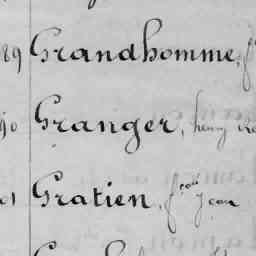 89 Grandhomme, f
90 Granger, henry
91 Gratien, f.çois Jean